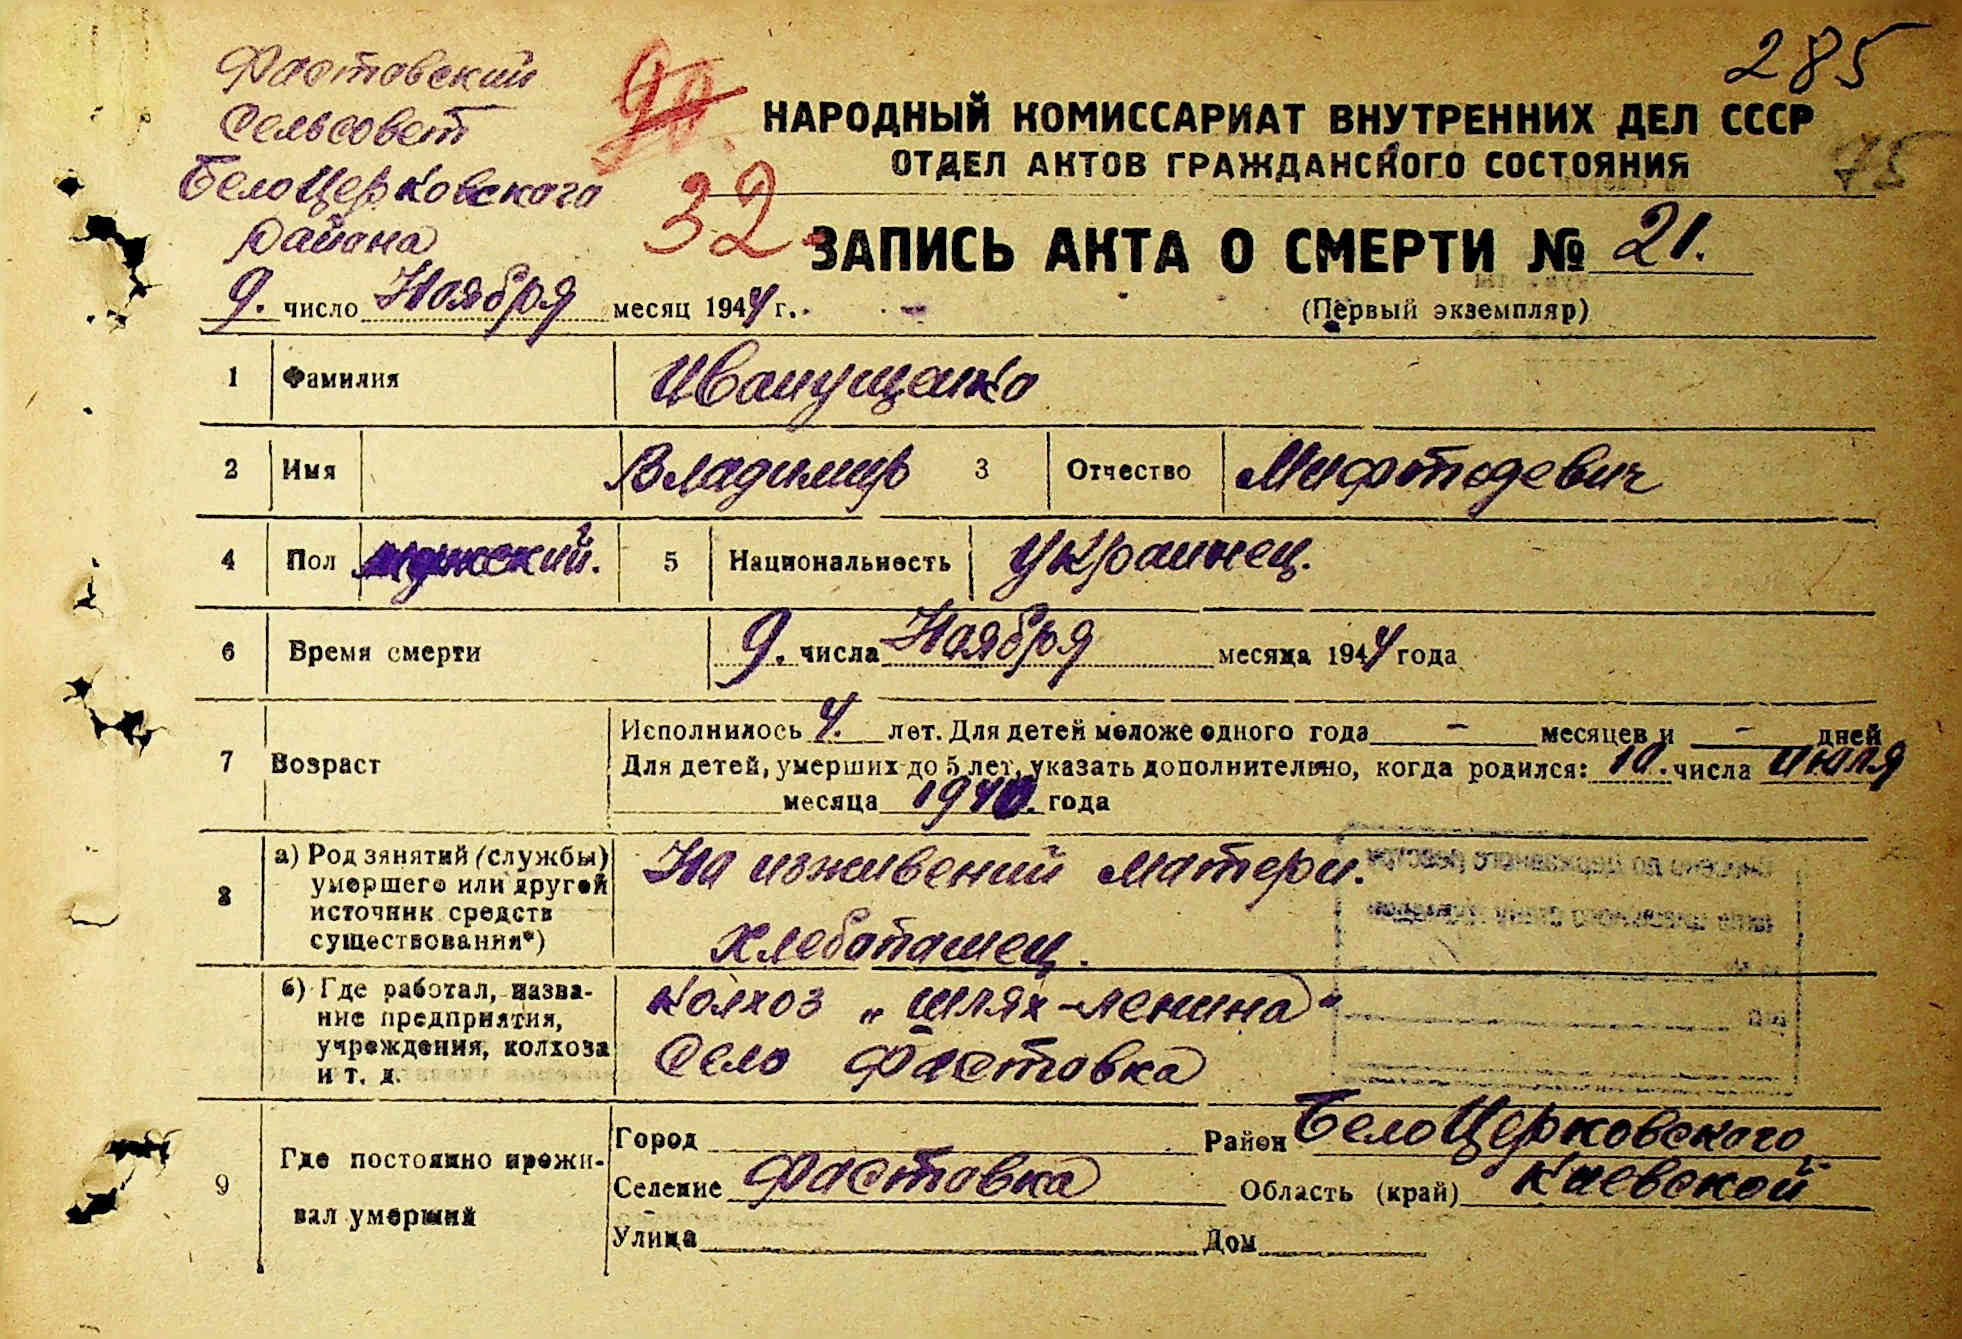 285
Фастовский
Сельсовет
БелоЦерковского
района
90.
32
75
НАРОДНЫЙ КОМИССАРИАТ ВНУТРЕННИХ ДЕЛ СССР
ОТДЕЛ АКТОВ ГРАЖДАНСКОГО СОСТОЯНИЯ
ЗАПИСЬ АКТА О СМЕРТИ № 21.
9. число Ноября месяц 1944 г.
(Первый экземпляр)
1 Фамилия Иванущенко
2 Имя Владимир 3 Отчество Мифтодевич
4 Пол мужский. 5 Национальность Украинец.
6 Время смерти 9. числа Ноября месяца 1944 года
7 Возраст Исполнилось 4. лет. Для детей моложе одного года – месяцев и – дней
Для детей, умерших до 5 лет, указать дополнительно, когда родился: 10. числа Июля
месяца 1940. года
8 а) Род занятий (службы) умершего или другой источник средств существования*) На иживений матери.
хлебопашец.
б) Где работал, название предприятия, учреждения, колхоза и т. д. колхоз „шлях-Ленина"
Село Фастовка
9 Где постоянно проживал умерший Город Район БелоЦерковского
Селение Фастовка Область (край) Киевской
Улица Дом